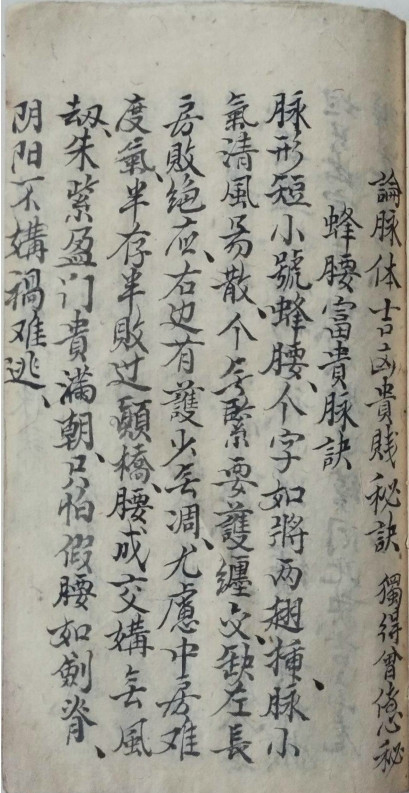 論脉体吉凶貴賤秘訣 獨得曾憶秘
蜂腰富貴脉訣
脉形短小號蜂腰、个字如將两翅揷、脉小
氣清風易散、个無緊要護纏交、缺左長
房敗絶应、右边有護少無凋、尤慮中房难
度氣、半存半敗过顛橋、腰成交媾無風
刼、朱紫盈门貴滿朝、只怕假腰如劍脊、
阴阳不媾禍难逃、